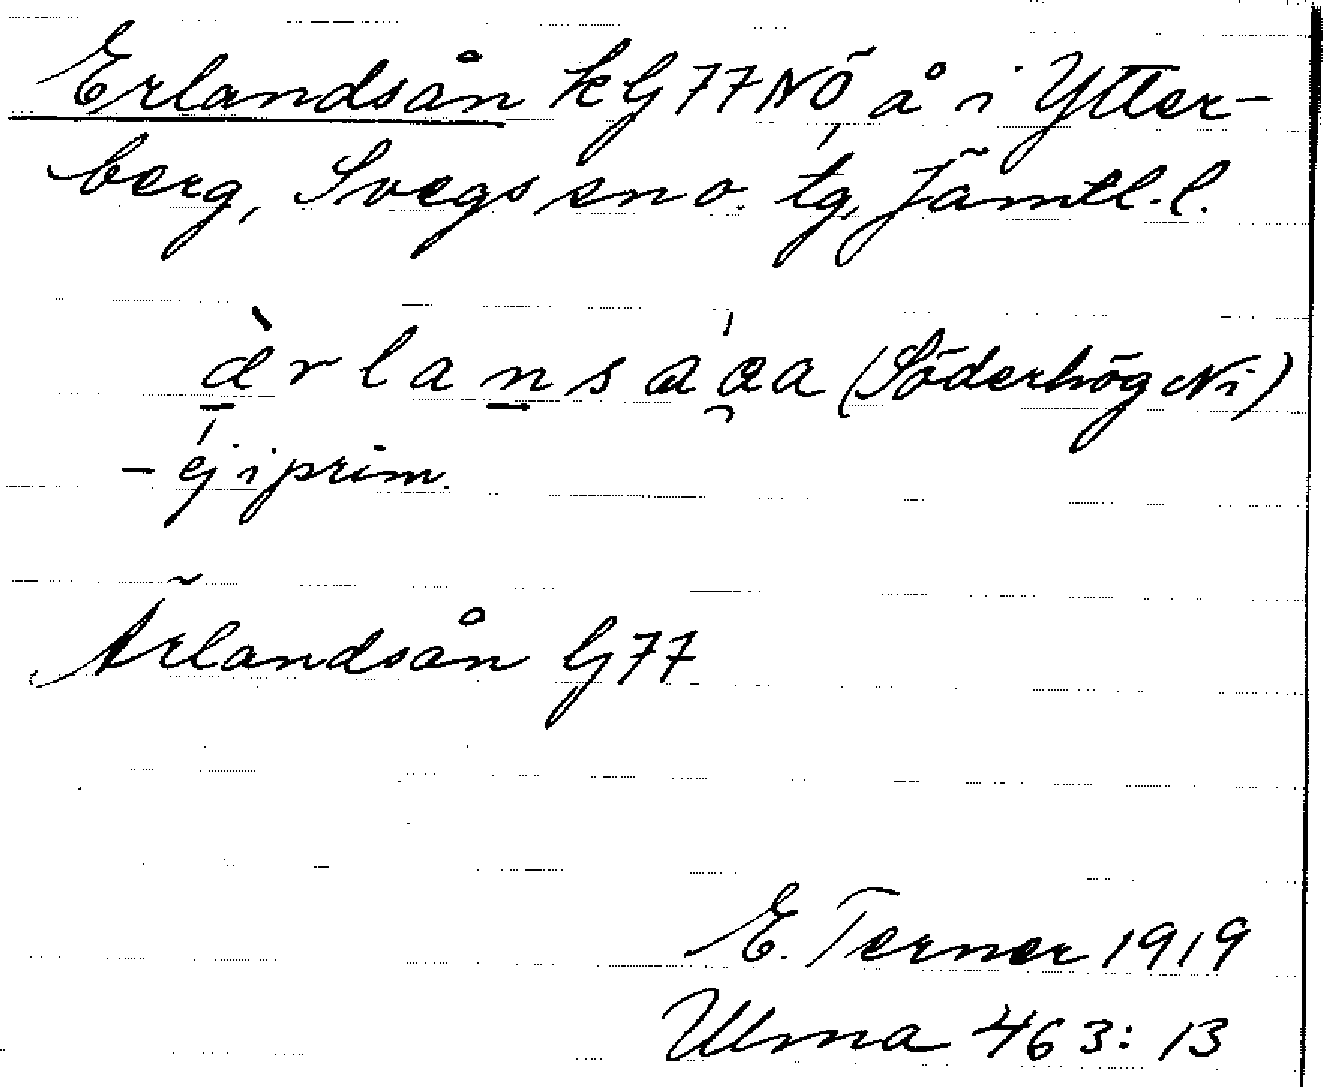 Erlandsån kG77NÖ, å i Ytter-
berg, Svegs sn o. tg, Jämtl.l.
ærlansáœa (Söderhög Ni)
– ej i prim.
Ärlandsån G77
E. Terner 1919
Ulma 463: 13